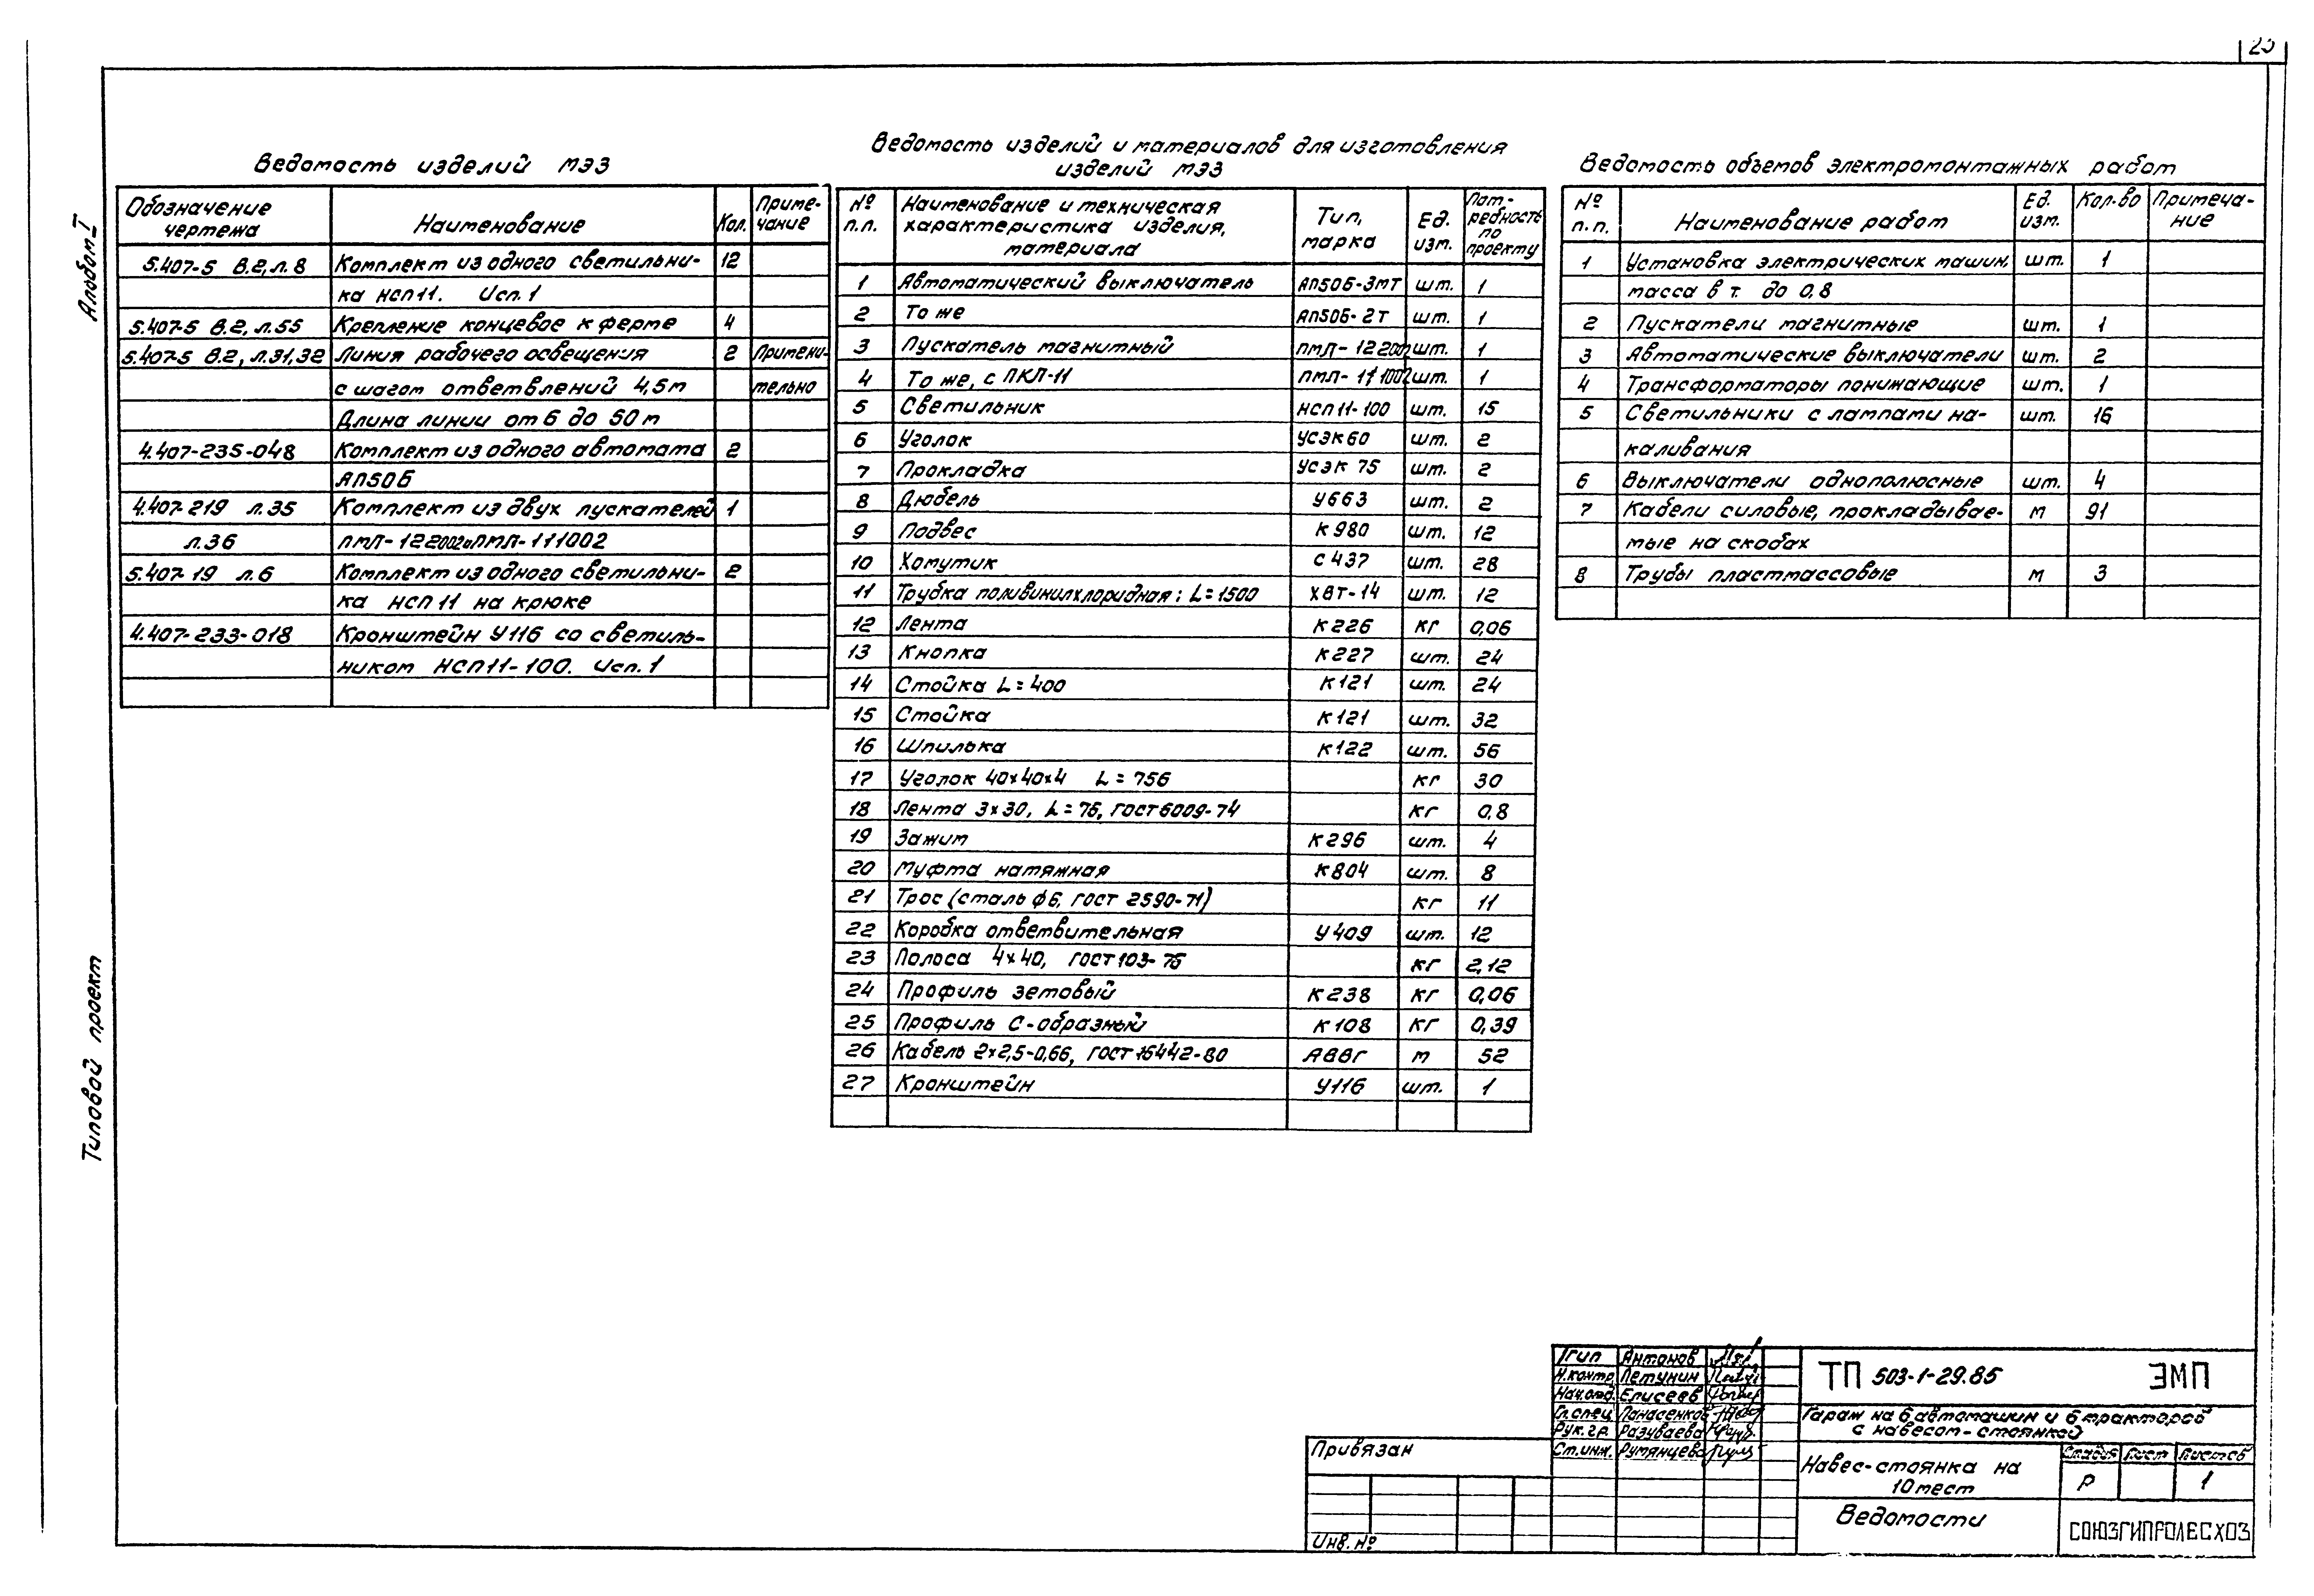 Альбом I
Типовой проект
Ведомость изделий МЭЗ
Обозначение чертежа | Наименование | Кол. | Приме-чание
5.407-5 в.2, л.8 | Комплект из одного светильни- | 12
ка НСП11. Исп. 1
5.407-5 в.2, л.55 | Крепление концевое к ферме | 4
5.407-5 в.2, л.31,32 | Линия рабочего освещения | 2 | Примени-
с шагом ответвлений 4,5м | тельно
Длина линии от 6 до 50 м
4.407-235-048 | Комплект из одного автомата | 2
АП50Б
4.407-219 л.35 | Комплект из двух пускателей | 1
л.36 | ПМЛ-122002и ПМЛ-111002
5.407-19 л.6 | Комплект из одного светильни- | 2
ка НСП11 на крюке
4.407-233-018 | Кронштейн У116 со светиль-
ником НСП11-100. Исп. 1
Ведомость изделий и материалов для изготовления
изделий МЭЗ
№ п.п. | Наименование и техническая характеристика изделия, материала | Тип, марка | Ед. изм. | Пот-ребность по проекту
1 | Автоматический выключатель | АП50Б-3МТ | шт. | 1
2 | То же | АП50Б-2Т | шт. | 1
3 | Пускатель магнитный | ПМЛ-122002 | шт. | 1
4 | То же, с ПКЛ-11 | ПМЛ-111002 | шт. | 1
5 | Светильник | НСП11-100 | шт. | 15
6 | Уголок | УСЭК60 | шт. | 2
7 | Прокладка | УСЭК 75 | шт. | 2
8 | Дюбель | У663 | шт. | 2
9 | Подвес | К980 | шт. | 12
10 | Хомутик | С437 | шт. | 28
11 | Трубка поливинилхлоридная: L=1500 | ХВТ-14 | шт. | 12
12 | Лента | К226 | кг | 0,06
13 | Кнопка | К227 | шт. | 24
14 | Стойка L=400 | К121 | шт. | 24
15 | Стойка | К121 | шт. | 32
16 | Шпилька | К122 | шт. | 56
17 | Уголок 40х40х4 L=756 | кг | 30
18 | Лента 3х30, L=76, ГОСТ 6009-74 | кг | 0,8
19 | Зажим | К296 | шт. | 4
20 | Муфта натяжная | К804 | шт. | 8
21 | Трос (сталь ф6, ГОСТ 2590-71) | кг | 11
22 | Коробка ответвительная | У409 | шт. | 12
23 | Полоса 4х40, ГОСТ 103-76 | кг | 2,12
24 | Профиль зетовый | К238 | кг | 0,06
25 | Профиль С-образный | К108 | кг | 0,39
26 | Кабель 2х2,5-0,66, ГОСТ 16442-80 | АВВГ | м | 52
27 | Кронштейн | У116 | шт. | 1
Ведомость объемов электромонтажных работ
№ п.п. | Наименование работ | Ед. изм. | Кол-во | Примеча-ние
1 | Установка электрических машин, | шт. | 1
масса в т. до 0,8
2 | Пускатели магнитные | шт. | 1
3 | Автоматические выключатели | шт. | 2
4 | Трансформаторы понижающие | шт. | 1
5 | Светильники с лампами на- | шт. | 16
каливания
6 | Выключатели однополюсные | шт. | 4
7 | Кабели силовые, прокладывае- | м | 91
мые на скобах
8 | Трубы пластмассовые | м | 3
Привязан
Инв. №
ГИП | Антонов
Н.контр. | Петунин
Нач.отд. | Елисеев
Гл.спец. | Панасенков
Рук.гр. | Разуваева
Ст.инж. | Румянцева
ТП 503-1-29.85 ЭМП
Гараж на 6 автомашин и 6 тракторов
с навесом-стоянкой
Навес-стоянка на
10 мест
Стадия | Лист | Листов
Р | 1
Ведомости
СОЮЗГИПРОЛЕСХОЗ